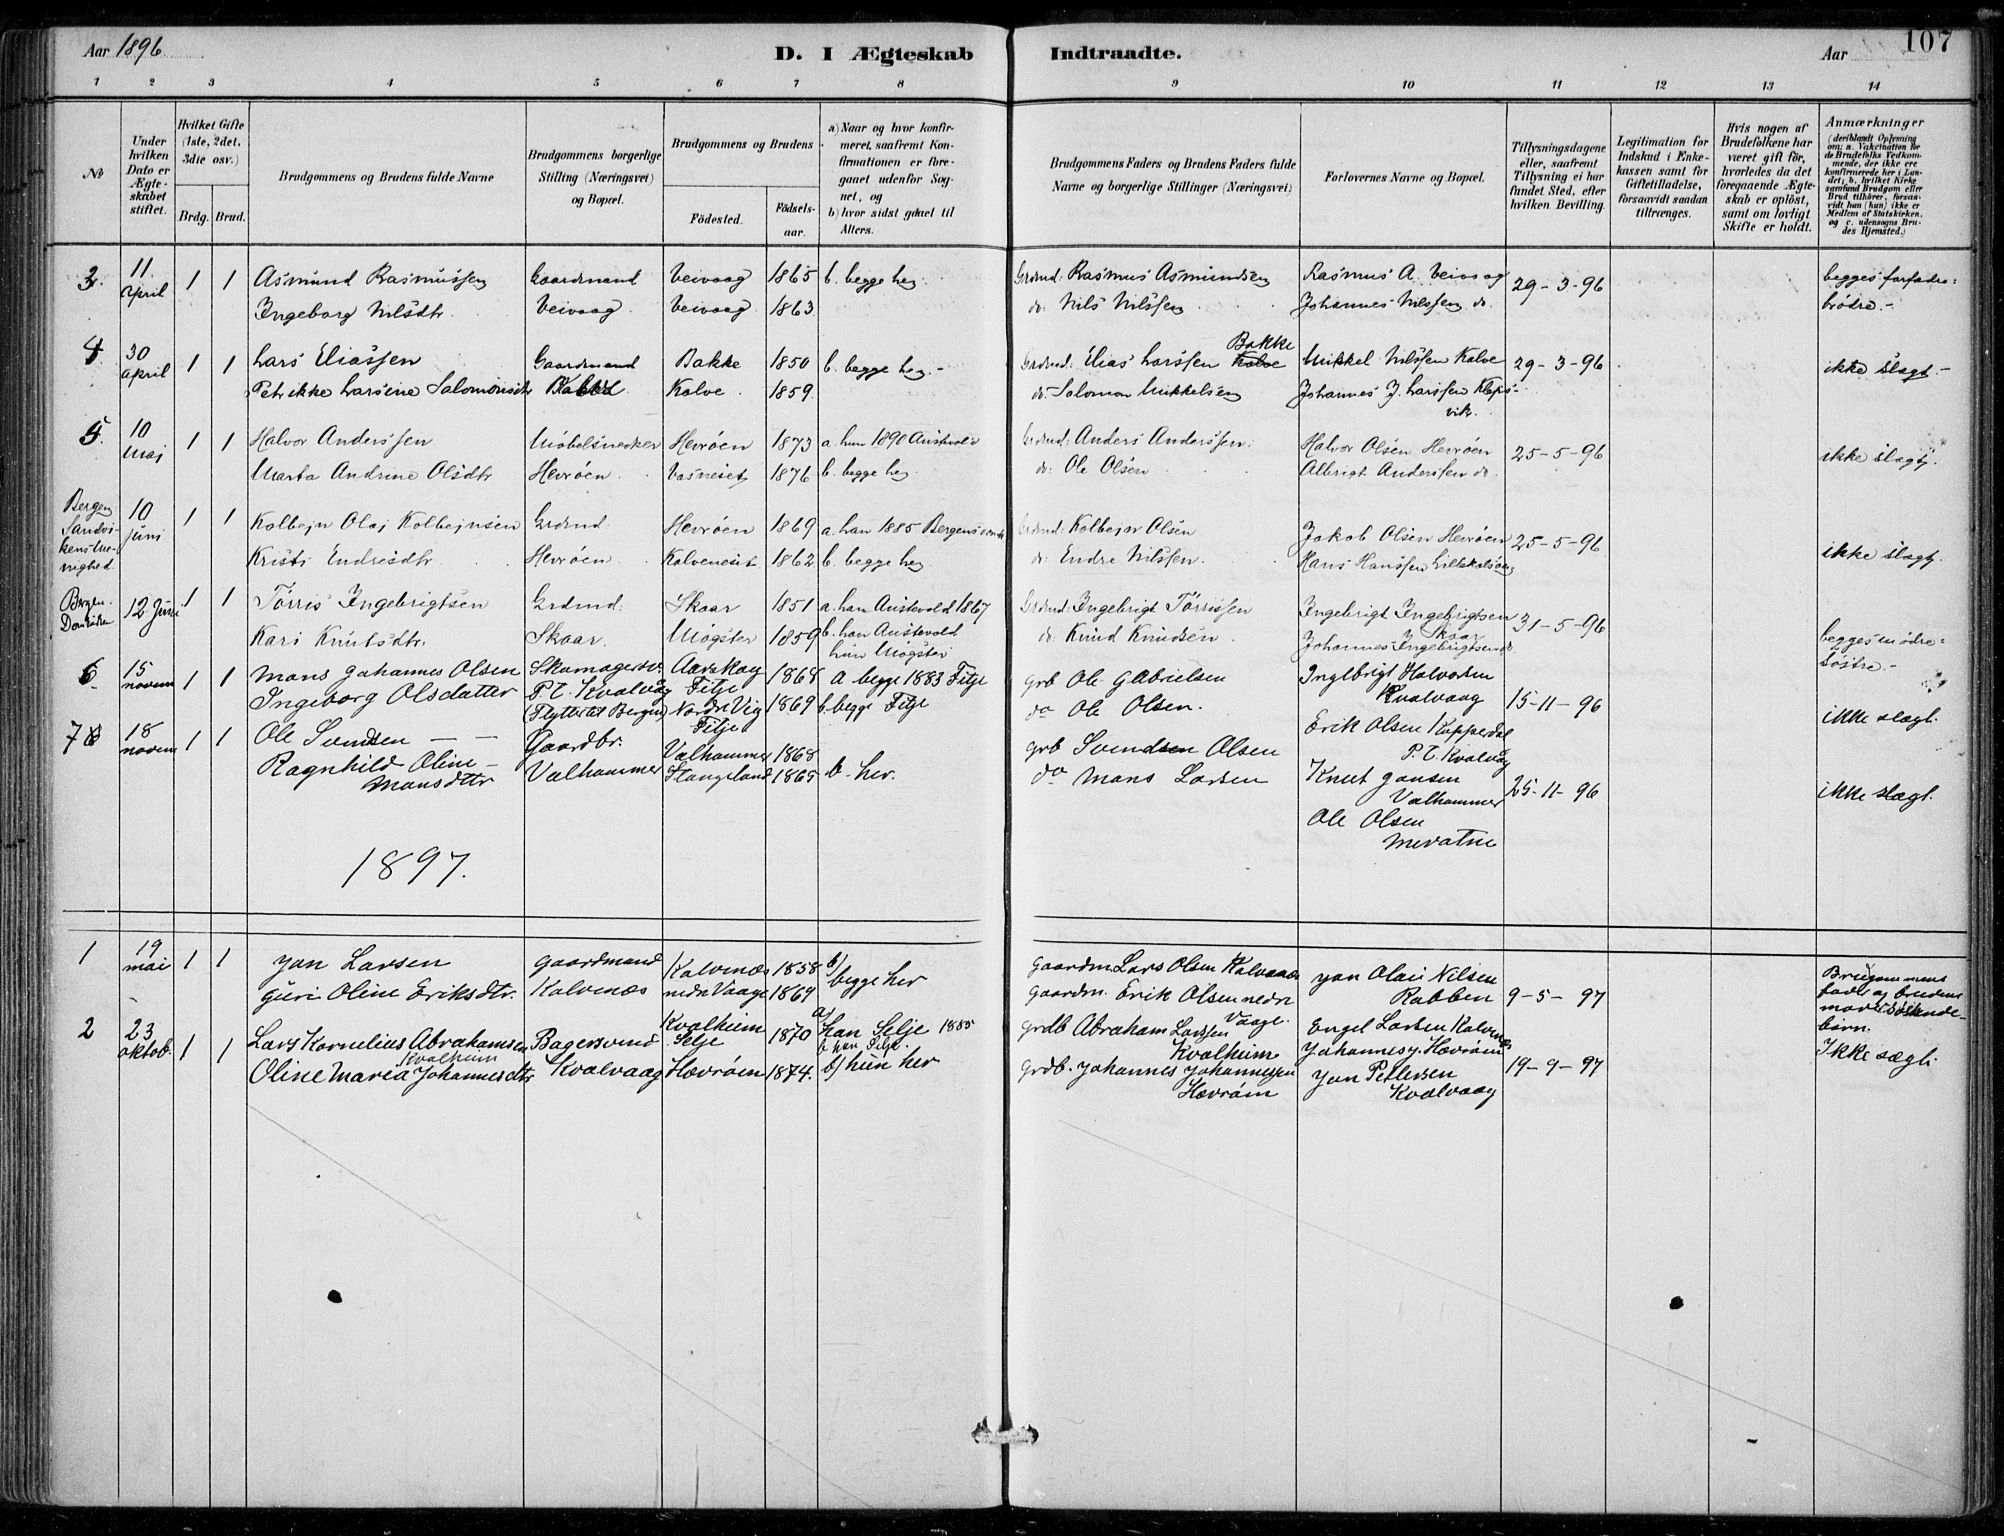 Aar 1896.
D. I Ægteskab Indtraadte.
Aar
107
1 2 3 4 5 6 7 8 9 10 11 12 13 14
№
Under hvilken Dato er Ægteskabet stiftet.
Hvilket Gifte (1ste, 2det, 3die osv.)
Brdg. Brud.
Brudgommens og Brudens fulde Navne
Brudgommens borgerlige Stilling (Næringsvei) og Bopæl.
Brudgommens og Brudens
Fødested. Fødselsaar.
a) Naar og hvor konfirmeret, saafremt Konfirmationen er foregaaet udenfor Sognet, og
b) hvor sidst gaaet til Alters.
Brudgommens Faders og Brudens Faders fulde Navne og borgerlige Stillinger (Næringsvei)
Forlovernes Navne og Bopæl.
Tillysningsdagene eller, saafremt Tillysning ei har fundet Sted, efter hvilken Bevilling.
Legitimation for Indskud i Enkekassen samt for Giftetilladelse, forsaavidt saadan tiltrænges.
Hvis nogen af Brudefolkene har været gift før, hvorledes da det foregaaende Ægteskab er opløst, samt om lovligt Skifte er holdt.
Anmærkninger (deriblandt Oplysning om: a. Vakcination for de Brudefolks Vedkommende, der ikke ere konfirmerede her i Landet; b. hvilket Kirkesamfund Brudgom eller Brud tilhører, forsaavidt han (hun) ikke er Medlem af Statskirken, og c. udensogns Brudes Hjemsted.)
3. 11. april 1 1 Asmund Rasmussen Gaardmand Veivaag 1865 b. begge her. Grdmd: Rasmus Asmundsen Rasmus A. Veivaag 29-3-96 begges farfadre:
Ingeborg Nilsdtr Veivaag. Veivaag 1863. do: Nils Nilssen Johannes Nilssen do. brødre.-
4 30 april 1 1 Lars Eliassen Gaardmand Bakke 1850 b. begge her.- Grdmd: Elias Larssen Kalve Bakke Mikkel Nilssen Kalve 29-3-96 ikke slægt-
Petrikke Larsine Salomonsdtr Kalve 1859. do: Salomon Mikkelsen Johannes J. Larssen Klepsvik.
5 10 Maj 1 1 Halvor Anderssen Møbelsnecker Hevrøen 1873 a. han 1890 Austevold Grdmd: Anders Anderssen: Halvor Olsen Hevrøen 25-5-96 ikke slægt.
Marta Andrine Olsdtr Hevrøen. Vasneset 1876 b. begge her do: Ole Olsen Albrigt Anderssen do.
Bergen Sandvikens Menighed 10 juni 1 1 Kolbejn Olaj Kolbejnsen Grdmd: Hevrøen 1869 a. han 1885 Bergen Grdmd: Kolbejn Olsen Jakob Olsen Hevrøen 25-5-96 ikke slægt.
Kristi Endresdtr Hevrøen. Kalveneset 1862 b. begge her do: Endre Nilssen. Hans Hanssen Lillekalsøy
Bergen Domkirken 12 Juni 1 1 Tørris Ingebrigtsen Grdmd: Skaar 1851 a. han Austevold 1867 Grdmd: Ingebrigt Tørrissen Ingebrigt Ingebrigtsen Skaar 31-5-96 begges mødre: søstre.-
Kari Knutsdtr. Skaar. Møgster 1859 b. han Austevold hun Møgster do: Knud Knudsen Johannes Ingebrigtsen do.
6 15 novem 1 1 Mons Johannes Olsen Skomagersv. Aarskog Fitje 1868 a begge 1883 Fitje grb Ole Gabrielsen Ingebrigt Halvorsen Kvalvaag 15-11-96 ikke slægt.
Ingeborg Olsdatter P.T. Kvalvåg (Flyttet til Bergen) Nordre Vig Fitje 1869 b. begge Fitje do Ole Olsen. Erik Olsen Kopperdal P.T. Kvalvåg
7 18 novem 1 1 Ole Svendsen — — Gaardbr. Valhammer 1868 grb Svendsen Olsen Knut Jansen Valhammer 25-11-96 ikke slægt.
Ragnhild Oline - Monsdtr Valhammer Stangeland 1865 b- her. do Mons Larsen Ole Olsen
1897.
1 19 mai 1 1 Jan Larsen gaardmand Kalvenæs 1858 b) begge her gaardm Lars Olsen Kalvenæs Jan Olai Nilsen Rabben 9-5-97 Brugommens fader og brudens moder søskendebørn.
Guri Oline Eriksdtr. Kalvenæs nedre Vaage 1869 gaardm. Erik Olsen nedre Vaage. Engel Larsen Kalvenæs
2 23 oktob. 1 1 Lars Kornelius Abrahamsen Kvalheim Bagersvend Kvalheim Selje 1870 a) han Selje 1885 b han Fitje. grdb Abraham Larssen Kvalheim Johannes J. Hævrøen 19-9-97 Ikke sægt.
Oline Maria Johannesdtr Kvalvaag Hævrøen 1874. b) hun her grdb. Johannes Johannessen Hævrøen Jan Pettersen Kvalvaag